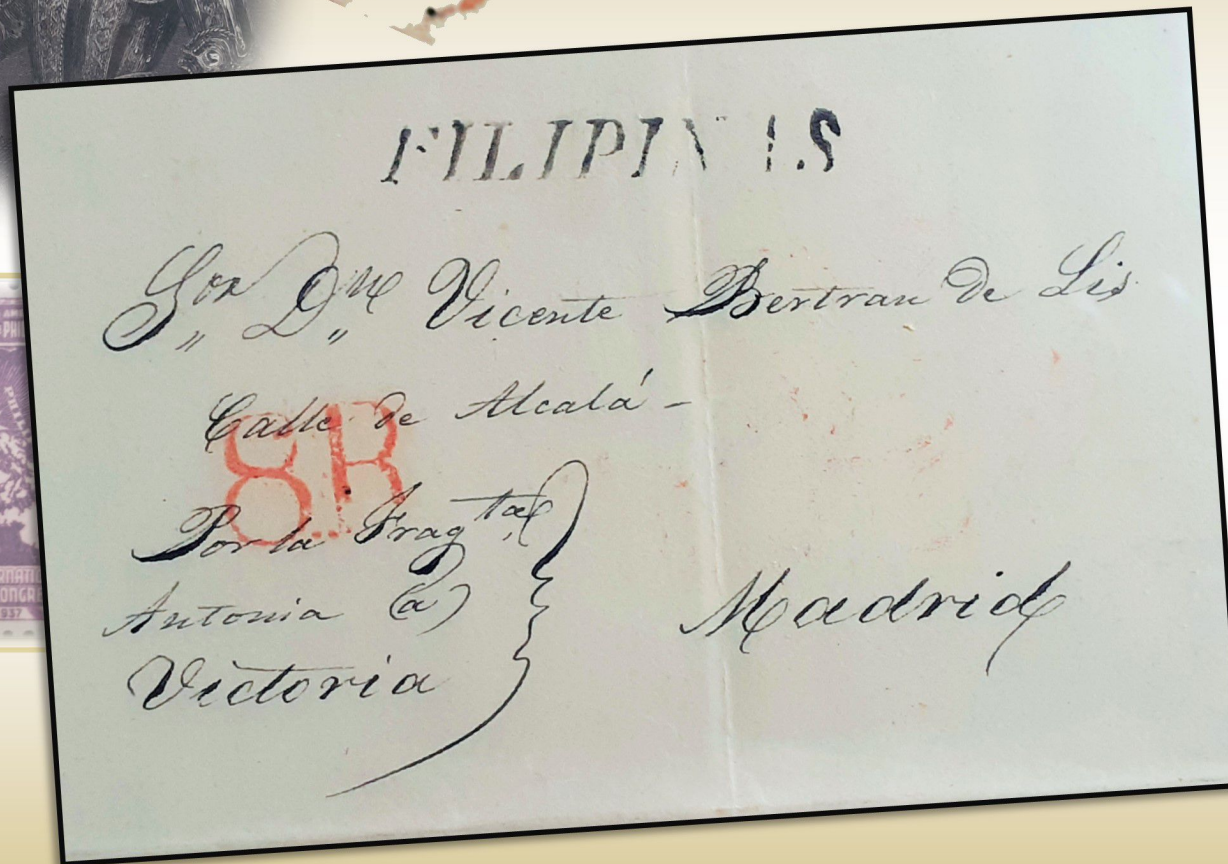 FILIPINAS
Sor Dn Vicente Bertran De Lis
Calle de Alcalá -
8R
Por la Fragta
Antonia (a)
Victoria
Madrid
1937